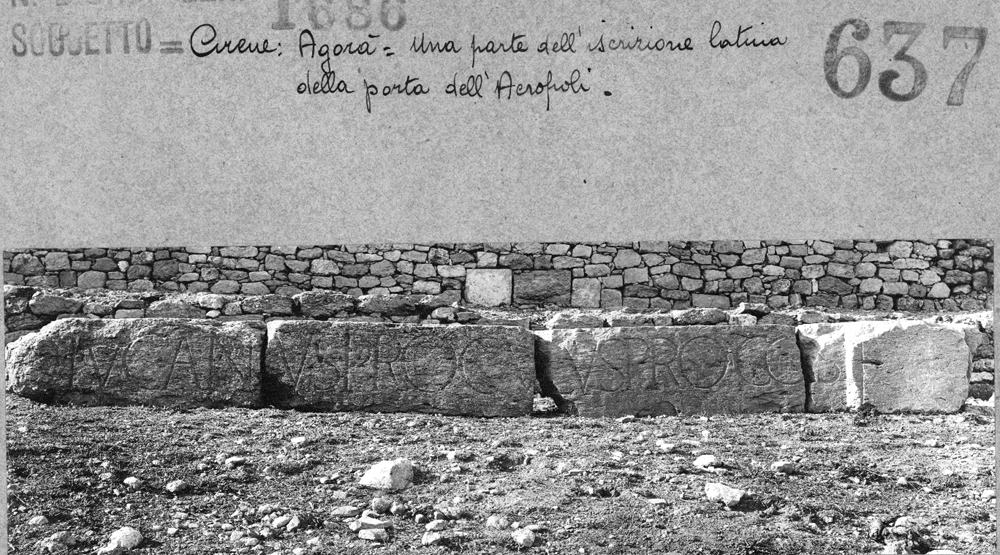 1686
SOGGETTO = Cirene: Agorà = Una parte dell'iscrizione latina
della porta dell'Acropoli.
637
LVCANIVSPROC VSPROCOS F